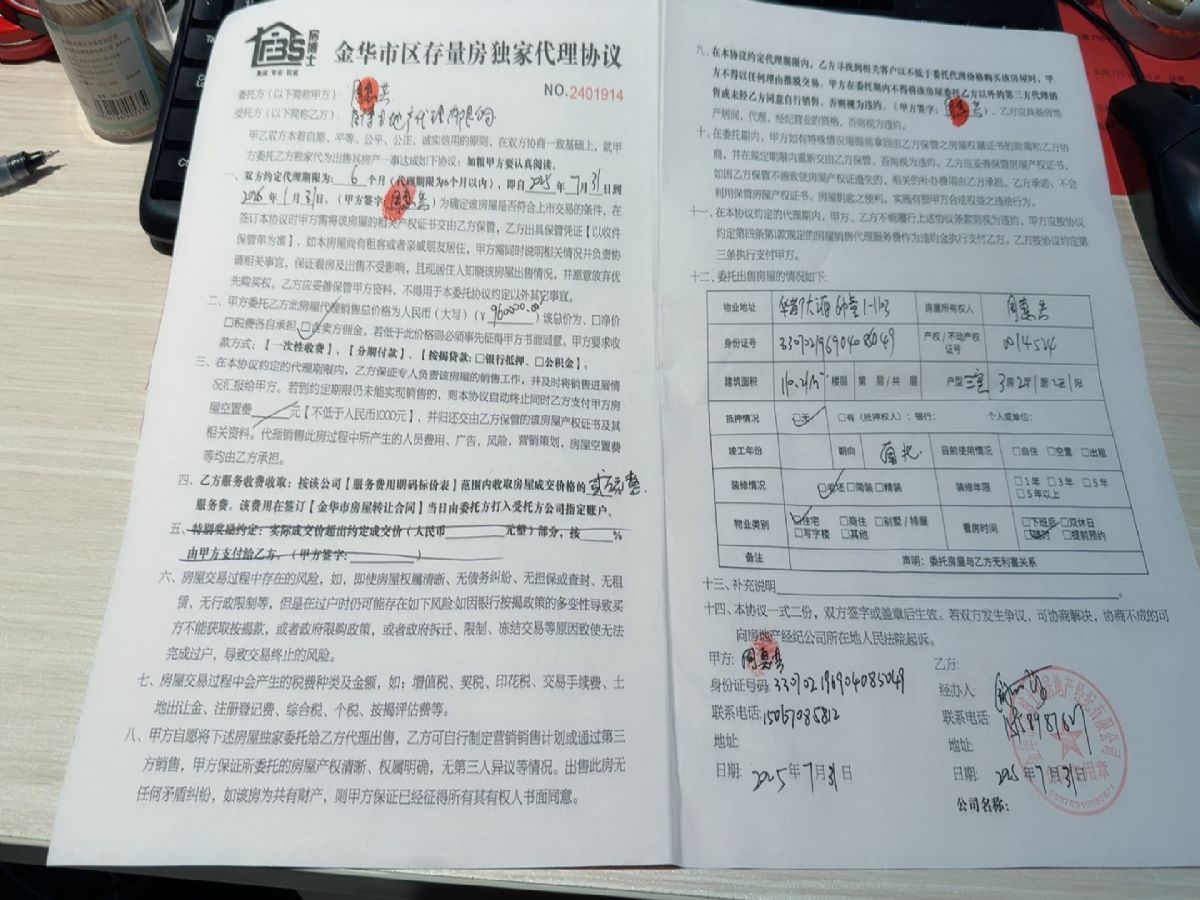 房博士
真诚 专业 权威
金华市区存量房独家代理协议
NO.2401914
委托方（以下简称甲方）：
受托方（以下简称乙方）：
甲乙双方本着自愿、平等、公平、公正、诚实信用的原则，在双方协商一致基础上，就甲
方委托乙方独家代为出售其房产一事达成如下协议；加粗甲方要认真阅读。
一、双方约定代理期限为：6个月（代理期限为6个月以内），即自2025年7月31日到
2026年1月31日。（甲方签字：）为确定该房屋是否符合上市交易的条件，在
签订本协议时甲方需将该房屋的相关产权证书交由乙方保管，乙方出具保管凭证【以收件
保管单为准】，如本房屋尚有租客或者亲戚朋友居住，甲方需同时说明相关情况并负责协
调相关事宜，保证看房及出售不受影响，且现居住人知晓该房屋出售情况，并愿意放弃优
先购买权。乙方应妥善保管甲方资料，不得用于本委托协议约定以外其它事宜。
二、甲方委托乙方此房屋代理销售总价格为人民币（大写）（¥960000.00）该总价为、□净价
□税费各自承担、□含卖方佣金。若低于此价格则必须事先征得甲方书面同意。甲方要求收
款方式：【一次性收费】、【分期付款】、【按揭贷款：□银行抵押、□公积金】。
三、在本协议约定的代理期限内，乙方保证专人负责该房屋的销售工作，并及时将销售进展情
况汇报给甲方。若到约定期限仍未能实现销售的，则本协议自动终止同时乙方支付甲方房
屋空置费元【不低于人民币1000元】，并归还交由乙方保管的该房屋产权证书及其
相关资料。代理销售此房过程中所产生的人员费用、广告、风险，营销策划，房屋空置费
等均由乙方承担。
四、乙方服务收费收取：按该公司【服务费用明码标价表】范围内收取房屋成交价格的
服务费。该费用在签订【金华市房屋转让合同】当日由委托方打入受托方公司指定账户。
五、特别奖励约定：实际成交价超出约定成交价（人民币元整）部分，按%
由甲方支付给乙方，（甲方签字：）
六、房屋交易过程中存在的风险，如，即使房屋权属清晰、无债务纠纷、无担保或查封、无租
赁、无行政限制等，但是在过户时仍可能存在如下风险:如因银行按揭政策的多变性导致买
方不能获取按揭款，或者政府限购政策，或者政府拆迁、限制、冻结交易等原因致使无法
完成过户，导致交易终止的风险。
七、房屋交易过程中会产生的税费种类及金额，如：增值税、契税、印花税、交易手续费、土
地出让金、注册登记费、综合税、个税、按揭评估费等。
八、甲方自愿将下述房屋独家委托给乙方代理出售，乙方可自行制定营销销售计划或通过第三
方销售，甲方保证所委托的房屋产权清晰、权属明确，无第三人异议等情况。出售此房无
任何矛盾纠纷，如该房为共有财产，则甲方保证已经征得所有其有权人书面同意。
九、在本协议约定代理期限内，乙方寻找到相关客户以不低于委托代理价格购买该房屋时，甲
方不得以任何理由推脱交易。甲方在委托期内不得将该房屋委托乙方以外的第三方代理销
售或未经乙方同意自行销售。否则视为违约。（甲方签字：）。乙方应具备房地
产居间、代理、经纪营业的资格，否则视为违约。
十、在委托期内，甲方如有特殊情况需提前拿回由乙方保管之房屋权属证书的则需和乙方协
商，并在规定期限内重新交由乙方保管，否则视为违约。乙方应妥善保管房屋产权证书，
如因乙方保管不善致使房屋产权证遗失的，相关的补办费用由乙方承担。乙方承诺：不会
利用保管房屋产权证书、房屋钥匙之便利，实施有损甲方合法权益之违法行为。
十一、在本协议约定的代理期内，甲方、乙方不能履行上述协议条款则视为违约，甲方应按协议
约定第四条第1款规定的房屋销售代理服务费作为违约金执行支付乙方。乙方按协议约定第
三条执行支付甲方。
十二、委托出售房屋的情况如下:
物业地址 1-1103 房屋所有权人
身份证号 330702196904085049 产权/不动产权证号 0014524
建筑面积 110.21m² 楼层 第 层/共 层 户型 3房2厅1厨2卫1阳
抵押情况 □无 □有（抵押权人）：银行： 个人或单位：
竣工年份 朝向 南北 目前使用情况 □自住 □空置 □出租
装修情况 □毛坯 □简装 □精装 装修年限 □1年 □3年 □5年 □5年以上
物业类别 □住宅 □商住 □别墅/排屋 □写字楼 □其他 看房时间 □下班后 □双休日 □随时 □提前预约
备注 声明：委托房屋与乙方无利害关系
十三、补充说明。
十四、本协议一式二份，双方签字或盖章后生效。若双方发生争议，可协商解决，协商不成的可
向房地产经纪公司所在地人民法院起诉。
甲方:
乙方:
身份证号码:330702196904085049
经办人:
联系电话:15067085812
联系电话:
地址:
地址:
日期: 2025年7月31日
日期: 2025年7月31日
公司名称: